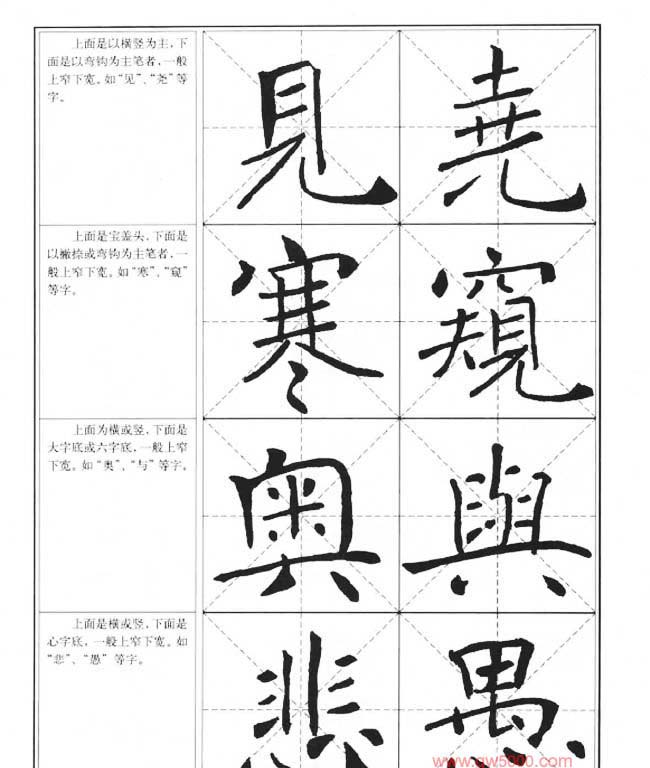 上面是以横竖为主，下
面是以弯钩为主笔者，一般
上窄下宽。如“见”、“尧”等
字。
見 堯
上面是宝盖头，下面是
以撇捺或弯钩为主笔者，一
般上窄下宽。如“寒”、“窥”
等字。
寒 窺
上面为横或竖，下面是
大字底或六字底，一般上窄
下宽。如“奥”、“与”等字。
奥 與
上面是横或竖，下面是
心字底，一般上窄下宽。如
“悲”、“愚”等字。
悲 愚
www.gw5000.com